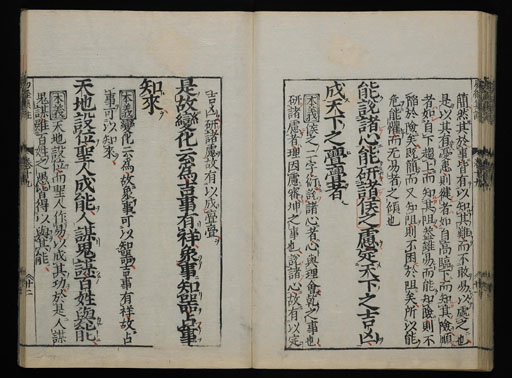 簡然其於事皆有以知其難而不敢易以處之也
是以其有憂患則健者如自高臨下而知其險順
者如自下趨上而知其阻蓋雖易而能知險則不
陷於險矣既簡而又知阻則不困於阻矣所以能
危能懼而无易者之傾也
能說諸心能研諸侯之慮定天下之吉凶
成天下之亹亹者
本義侯之二字衍說諸心者心與理會乾之事也
研諸慮者理因慮審坤之事也說諸心故有以定
吉凶研諸慮故有以成亹亹
是故變化云為吉事有祥象事知器占事
知來
本義變化云為故象事可以知器吉事有祥故占
事可以知來
天地設位聖人成能人謀鬼謀百姓與能
本義天地設位而聖人作易以成其功於是人謀
鬼謀雖百姓之愚皆得以與其能
廿二